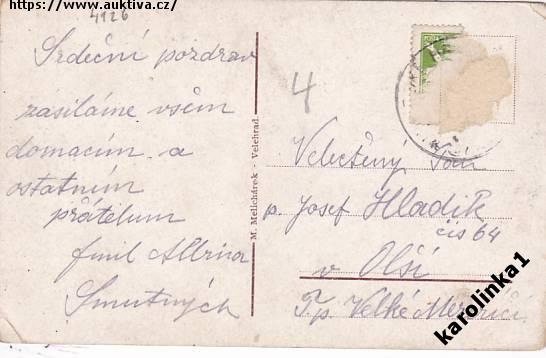 https://www.auktiva.cz/
4926
Srdeční pozdrav
zasíláme všem
domacím a
ostatním
přátelum
Emil Albina
Smutných
M. Melichárek - Velehrad.
4
Velectěný Pán
p. Josef Hladik
čis 64
v Olší
T.p. Velké Meziříčí
karolinka1